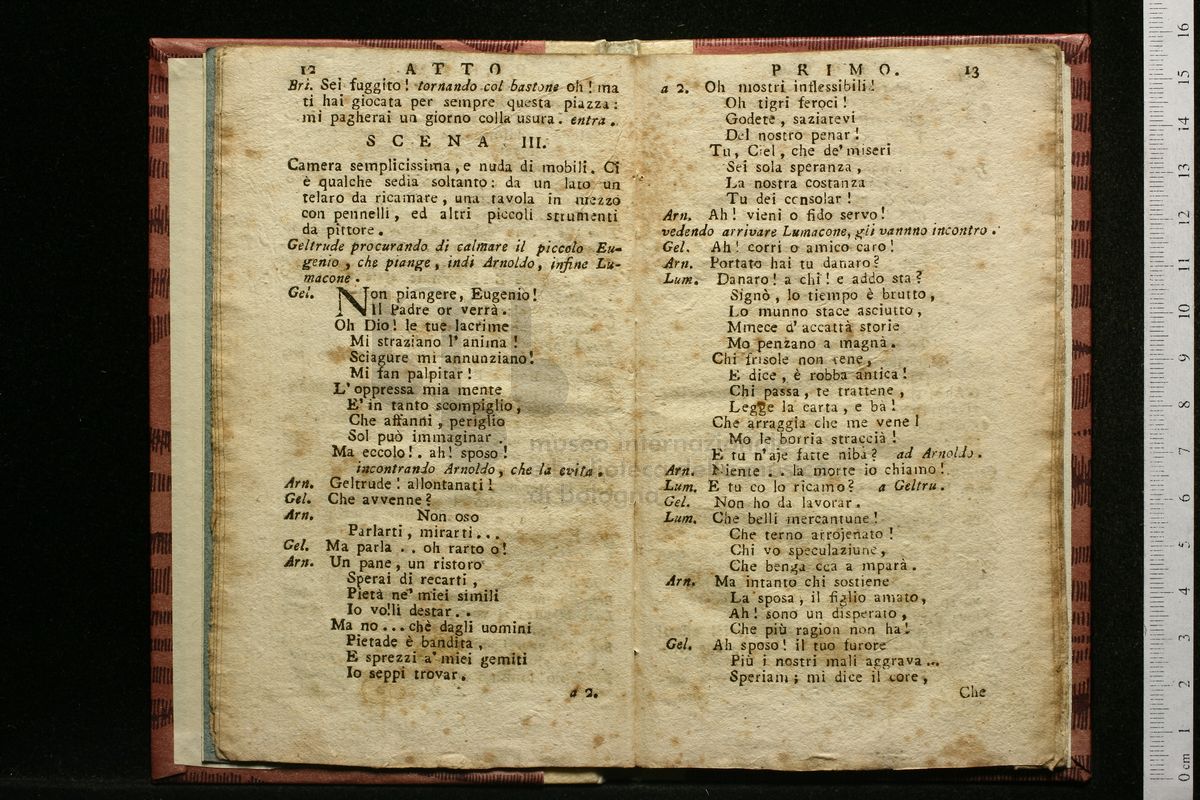 12 ATTO
Bri. Sei fuggito! tornando col bastone oh! ma
ti hai giocata per sempre questa piazza:
mi pagherai un giorno colla usura. entra.
SCENA III.
Camera semplicissima, e nuda di mobili. Ci
è qualche sedia soltanto: da un lato un
telaro da ricamare, una tavola in mezzo
con pennelli, ed altri piccoli strumenti
da pittore.
Geltrude procurando di calmare il piccolo Eu-
genio, che piange, indi Arnoldo, infine Lu-
macone.
Gel. Non piangere, Eugenio!
Il Padre or verrà.
Oh Dio! le tue lacrime
Mi straziano l'anima!
Sciagure mi annunziano!
Mi fan palpitar!
L'oppressa mia mente
E' in tanto scompiglio,
Che affanni, periglio
Sol può immaginar.
Ma eccolo!. ah! sposo!
incontrando Arnoldo, che la evita.
Arn. Geltrude! allontanati!
Gel. Che avvenne?
Arn. Non oso
Parlarti, mirarti...
Gel. Ma parla .. oh rarto o!
Arn. Un pane, un ristoro
Sperai di recarti,
Pietà ne' miei simili
Io volli destar..
Ma no... chè dagli uomini
Pietade è bandita,
E sprezzi a' miei gemiti
Io seppi trovar.
a 2.
PRIMO. 13
a 2. Oh mostri inflessibili!
Oh tigri feroci!
Godete, saziatevi
Del nostro penar!
Tu, Ciel, che de' miseri
Sei sola speranza,
La nostra costanza
Tu dei consolar!
Arn. Ah! vieni o fido servo!
vedendo arrivare Lumacone, gli vannno incontro.
Gel. Ah! corri o amico caro!
Arn. Portato hai tu danaro?
Lum. Danaro! a chi! e addo sta?
Signò, lo tiempo è brutto,
Lo munno stace asciutto,
Mmece d'accattà storie
Mo penzano a magnà.
Chi frisole non tene,
E dice, è robba antica!
Chi passa, te trattene,
Legge la carta, e bà!
Che arraggia che me vene!
Mo le borria straccià!
E tu n'aje fatte niba? ad Arnoldo.
Arn. Niente .. la morte io chiamo!
Lum. E tu co lo ricamo? a Geltru.
Gel. Non ho da lavorar.
Lum. Che belli mercantune!
Che terno arrojenato!
Chi vo speculaziune,
Che benga cca a mparà.
Arn. Ma intanto chi sostiene
La sposa, il figlio amato,
Ah! sono un disperato,
Che più ragion non ha!
Gel. Ah sposo! il tuo furore
Più i nostri mali aggrava...
Speriam; mi dice il core,
Che
museo internazionale
e biblioteca della musica
di bologna
0 cm 1 2 3 4 5 6 7 8 9 10 11 12 13 14 15 16